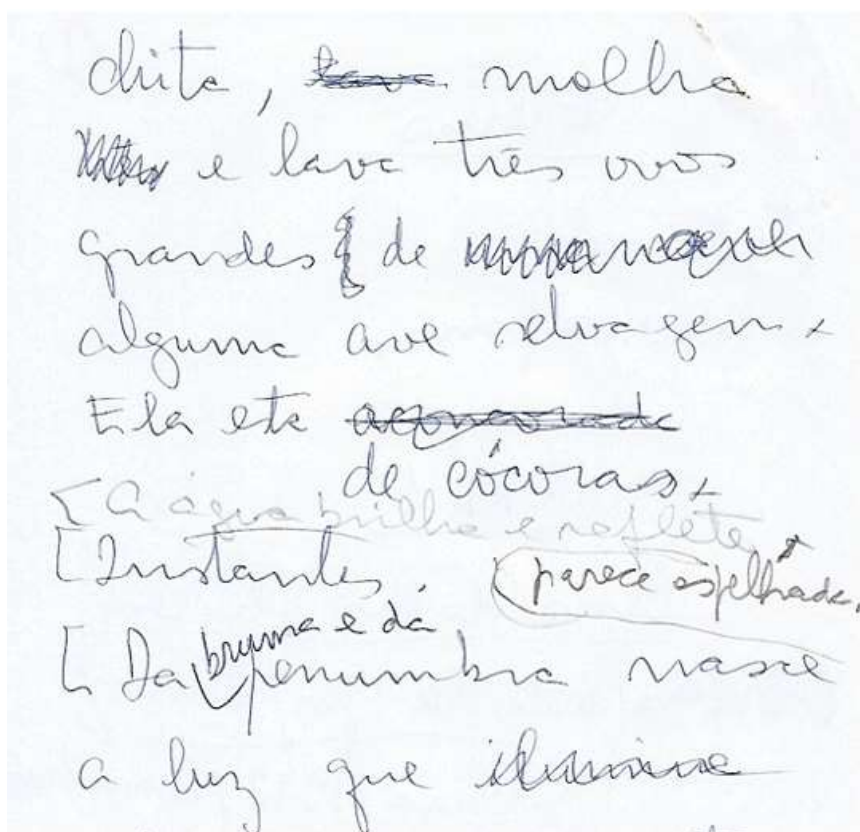 chita, molha
e lava três ovos
grandes de
alguma ave selvagem.
Ela etc
de cócoras.
[A água brilha e reflete,
[Instantes.
parece espelhada.
bruma e dá
[Da penumbra nasce
a luz que ilumina